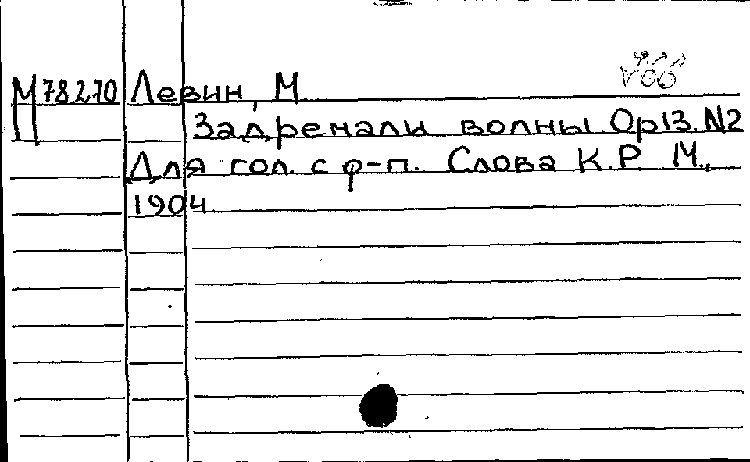 М 78270 Левин, М
Задремали волны Op13. N2
Для гол. с ф-п. Слова К.Р. М.,
1904